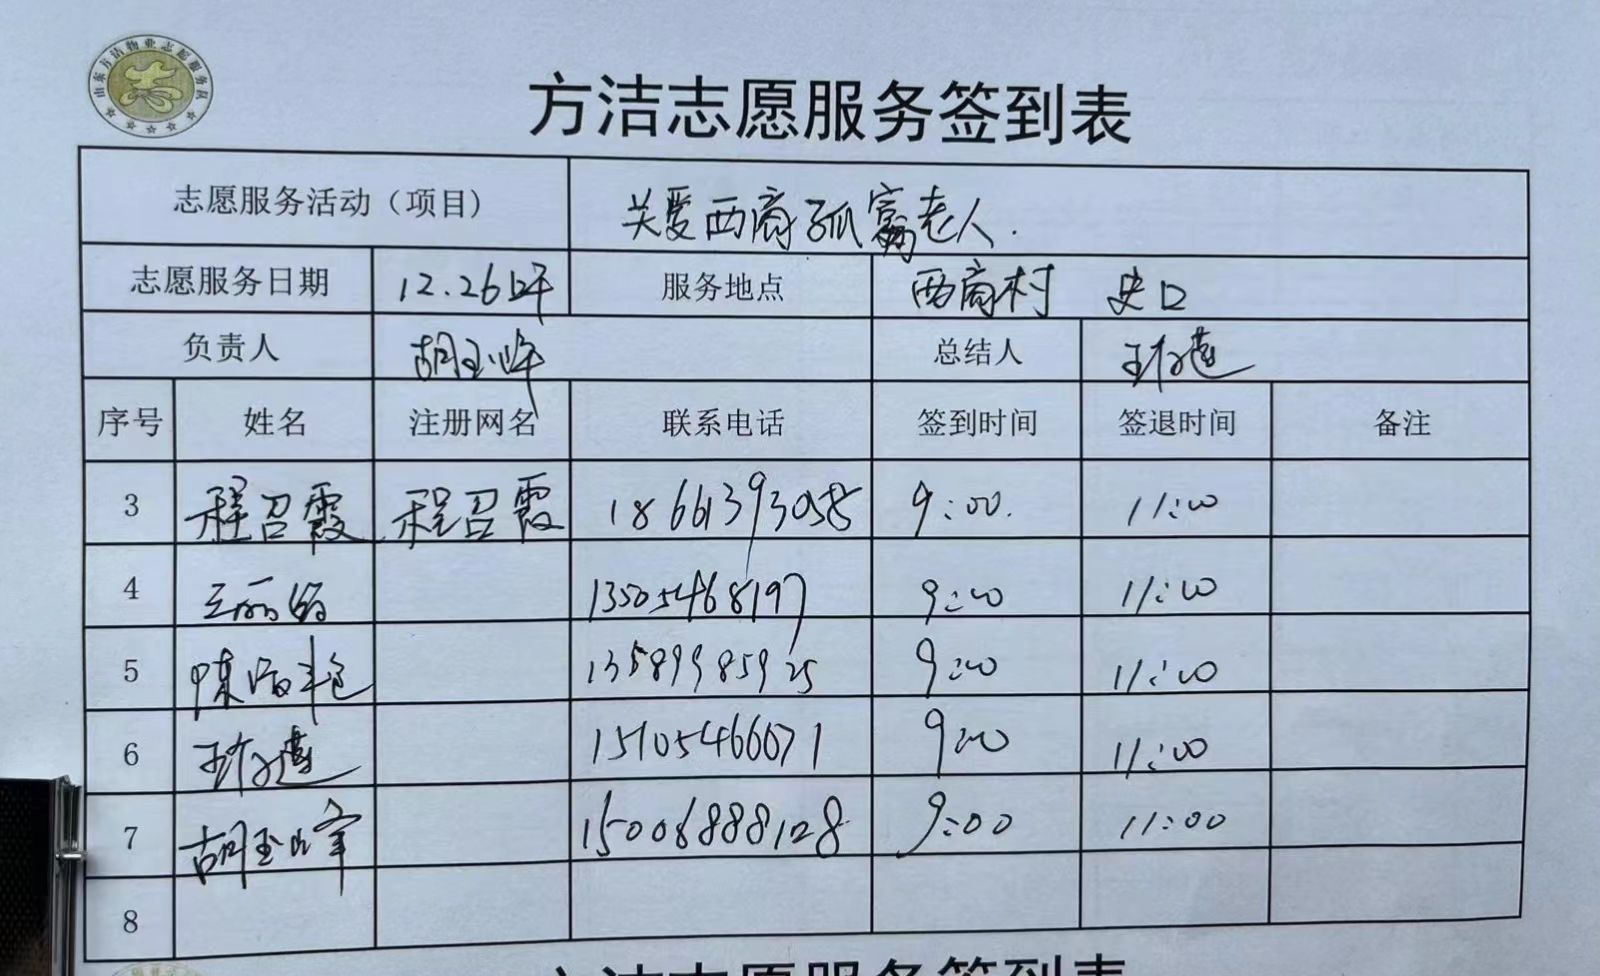 山东方洁物业志愿服务队
方洁志愿服务签到表
志愿服务活动（项目） 关爱西商孤寡老人.
志愿服务日期 12.26 服务地点 西商村 史口
负责人 胡玉峰 总结人
序号 姓名 注册网名 联系电话 签到时间 签退时间 备注
3 程召霞 程召霞 18661393058 9:00. 11:00
4 王丽娟 13505468197 9:00 11:00
5 陈海艳 13589985925 9:00 11:00
6 15105466671 9:00 11:00
7 胡玉峰 15006888128 9:00 11:00
8
方洁志愿服务签到表